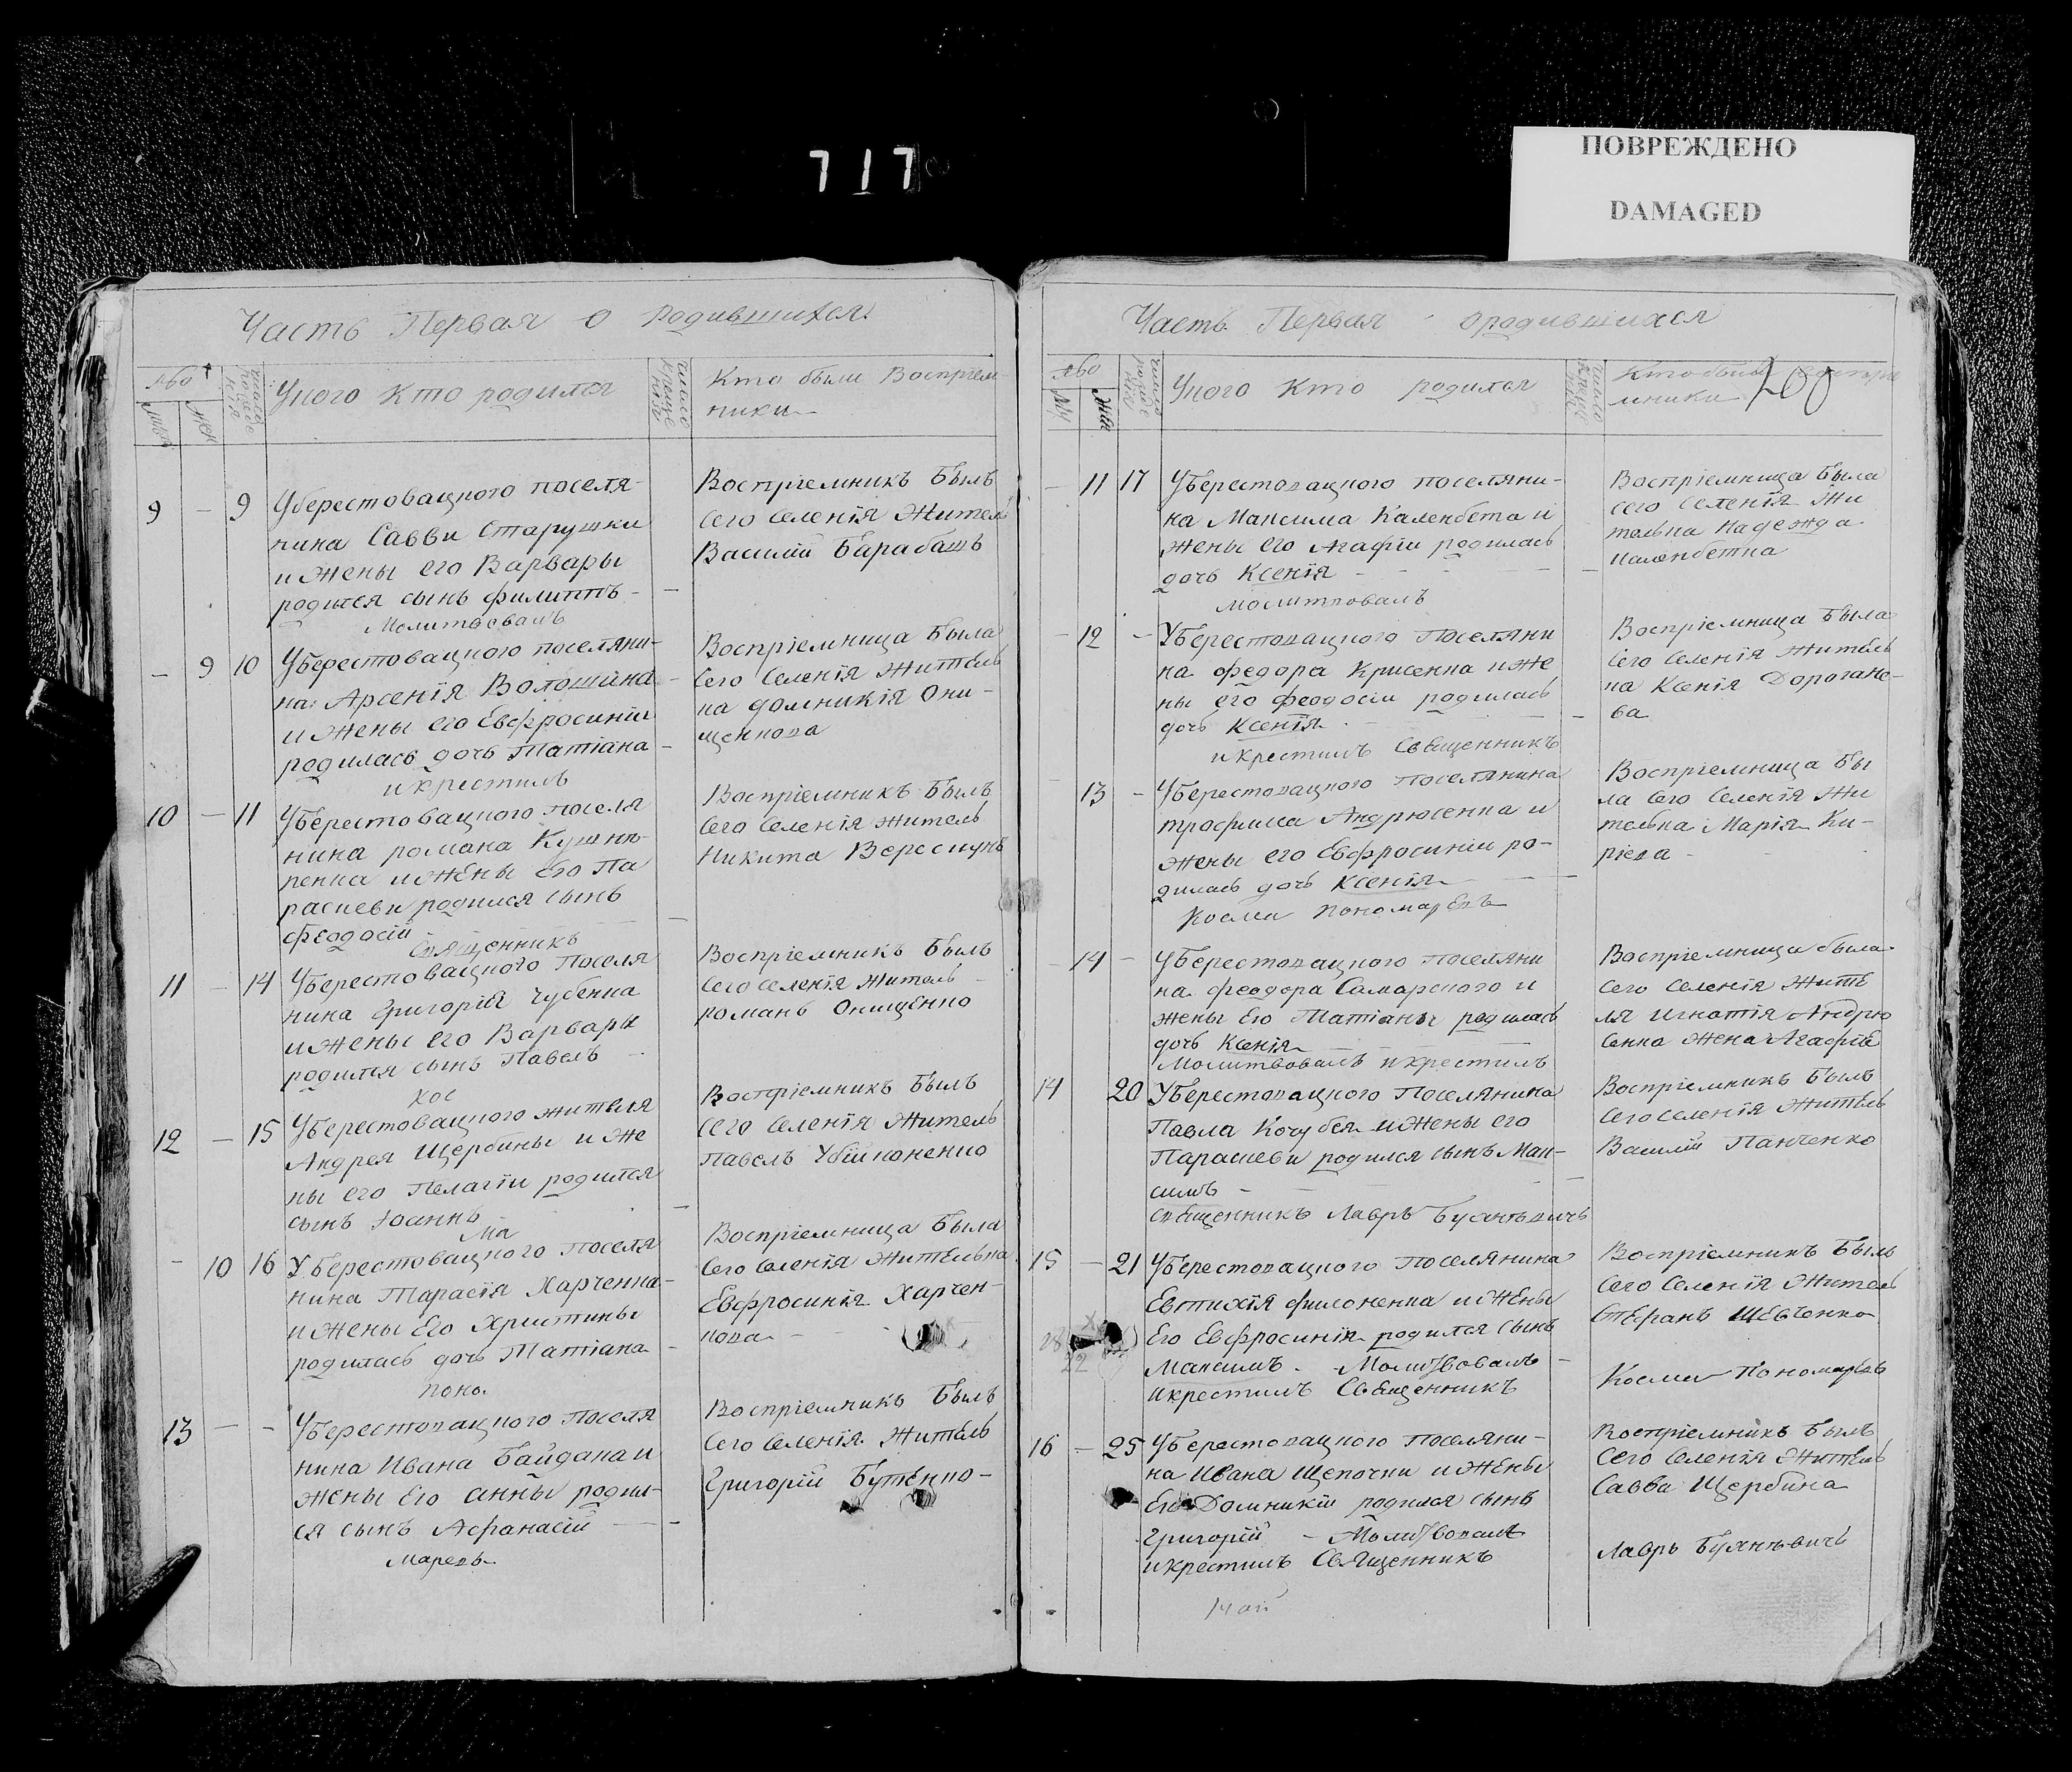 717
ПОВРЕЖДЕНО
DAMAGED
Часть Первая о родившихся
Уного кто родился
Кто были Воспрiем
ники
9 — 9 Уберестовацного поселя-
нина Савви Старушки
и Жены его Варвары
родился сынъ филиппъ -
Молитвовалъ
Воспрiемникъ Былъ
Сего Селенiя Житель
Василiй Барабашъ
— 9 10 Уберестовацного поселяни-
на Арсенiя Волошина
и Жены его Евфросинiи
родилась дочь Татiана
и крестилъ
Воспрiемница Была
Сего Селенiя Житель
на домникiя Они-
щенкова
10 — 11 Уберестовацного поселя
нина романа Кушни-
ренка и Жены Его Па
раскеви родился сынъ
Феодосiй
Священникъ
Воспрiемникъ Былъ
Сего Селенiя житель
Никита Вересцунъ
11 — 14 Уберестовацного Поселя
нина Григорiя Чубенка
и Жены его Варвары
родился сынъ Павелъ
Кос
Воспрiемникъ Былъ
Сего селенiя Житель
романъ Онищенко
12 — 15 Уберестовацного жителя
Андрея Щербины и Же
ны его Пелагiи родился
сынъ Iоаннъ
ма
Воспрiемникъ Былъ
Сего Селенiя Житель
Павелъ Убiйконенко
- 10 16 Уберестовацного Поселя
нина Тарасiя Харченка-
и Жены Его Христины
родилась дочь Татiана
поно.
Воспрiемница Была
Сего Селенiя Жителька
Евфросинiя Харчен-
кова
13 — - Уберестовацного Поселя
нина Ивана Байдака и
жены Его анны родил-
ся сынъ Афанасiй
Маревъ
Воспрiемникъ Былъ
Сего Селенiя Житель
Григорiй Бутенко-
Часть Первая о родившихся
Уного Кто родился
200
мники
— 11 17 Уберестовацного поселяни-
на Максима Каленбета и
жены его Агафiи родилась
дочь Ксенiя
Молитвовалъ
Воспрiемница Была
сего Селенiя Жи
телька Надежда
Каленбетка
— 12 - Уберестовацного Поселяни
на Федора Крисенка и Же
ны его Феодосiи родилась
дочь Ксенiя
и крестилъ Священникъ
Воспрiемница Была
Сего Селенiя Житель
ка Ксенiя Дорогане-
ва
13 - Уберестовацного Поселянина
трофима Андрюсенка и
жены его Евфросинiи ро-
дилась дочь Ксенiя
Косма Пономаревъ
Воспрiемница Бы
ла Сего Селенiя Жи
телька Марiя Ки-
рiева
- 14 - Уберестовацного Поселяни
на Феодора Самарского и
жены Его Татiаны родилась
дочь Ксенiя
Молитвовалъ и крестилъ
Воспрiемница была
Сего Селенiя Жите
ля Игнатiя Андрю
сенка Жена Агафiя
14 20 Уберестовацного Поселянина
Павла Кочубея и Жены его
Параскеви родился сынъ Мак-
симъ
Священникъ Лавръ Буяновичъ
Воспрiемникъ Былъ
Сего селенiя Житель
Василiй Панченко
15 — 21 Уберестовацного Поселянина
Евтихiя Филоненка и Жены
Его Евфросинiи родился сынъ
Максимъ. Молитвовалъ
и крестилъ Священникъ
Воспрiемникъ Былъ
Сего Селенiя Житель
Стефанъ Шевченко
Косма Пономаревъ
16 — 25 Уберестовацного Поселяни-
на Ивана Щепочки и Жены
Его Домникiи родился сынъ
Григорiй - Молитвовалъ
и крестилъ Священникъ
Воспрiемникъ Былъ
Сего Селенiя Житель
Савва Щербина
Лавръ Буяновичъ
май